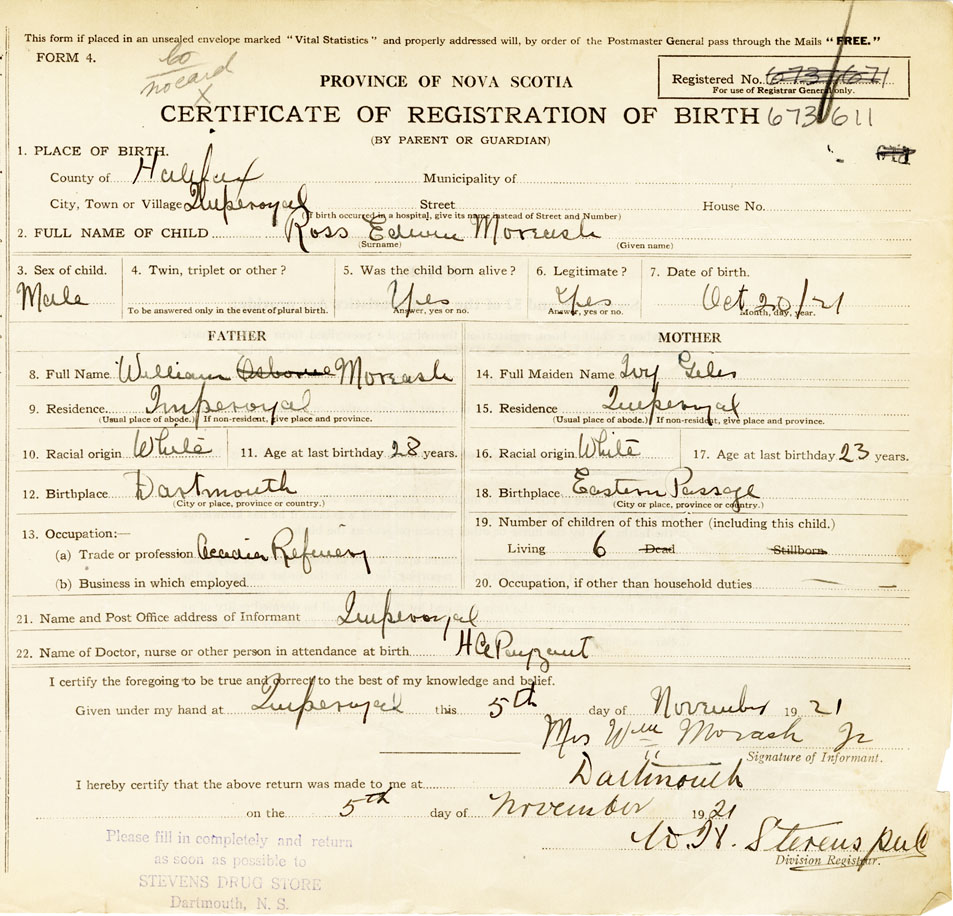 This form if placed in an unsealed envelope marked "Vital Statistics" and properly addressed will, by order of the Postmaster General pass through the Mails "FREE."
FORM 4.
no card
X
PROVINCE OF NOVA SCOTIA
Registered No. 673/671
For use of Registrar General only.
CERTIFICATE OF REGISTRATION OF BIRTH 673 611
(BY PARENT OR GUARDIAN)
1. PLACE OF BIRTH.
County of Halifax Municipality of
City, Town or Village Imperoyal Street House No.
(If birth occurred in a hospital, give its name instead of Street and Number)
2. FULL NAME OF CHILD Ross Edwin Moreash
(Surname) (Given name)
3. Sex of child. 4. Twin, triplet or other? 5. Was the child born alive? 6. Legitimate? 7. Date of birth.
Male Yes Yes Oct 20/21
To be answered only in the event of plural birth. Answer, yes or no. Answer, yes or no. Month, day, year.
FATHER MOTHER
8. Full Name William Osborne Moreash 14. Full Maiden Name Ivy Giles
9. Residence. Imperoyal 15. Residence Imperoyal
(Usual place of abode.) If non-resident, give place and province. (Usual place of abode.) If non-resident, give place and province.
10. Racial origin White 11. Age at last birthday 28 years. 16. Racial origin White 17. Age at last birthday 23 years.
12. Birthplace Dartmouth 18. Birthplace Eastern Passage
(City or place, province or country.) (City or place, province or country.)
13. Occupation:— 19. Number of children of this mother (including this child.)
(a) Trade or profession Acadia Refinery Living 6 Dead Stillborn
(b) Business in which employed 20. Occupation, if other than household duties —
21. Name and Post Office address of Informant Imperoyal
22. Name of Doctor, nurse or other person in attendance at birth H A Payzant
I certify the foregoing to be true and correct to the best of my knowledge and belief.
Given under my hand at Imperoyal this 5th day of November 1921
Mrs Wm Morash Jr
Signature of Informant.
I hereby certify that the above return was made to me at Dartmouth
on the 5th day of November 1921
Please fill in completely and return
as soon as possible to
STEVENS DRUG STORE
Dartmouth, N. S.
W. H. Stevens
Division Registrar.